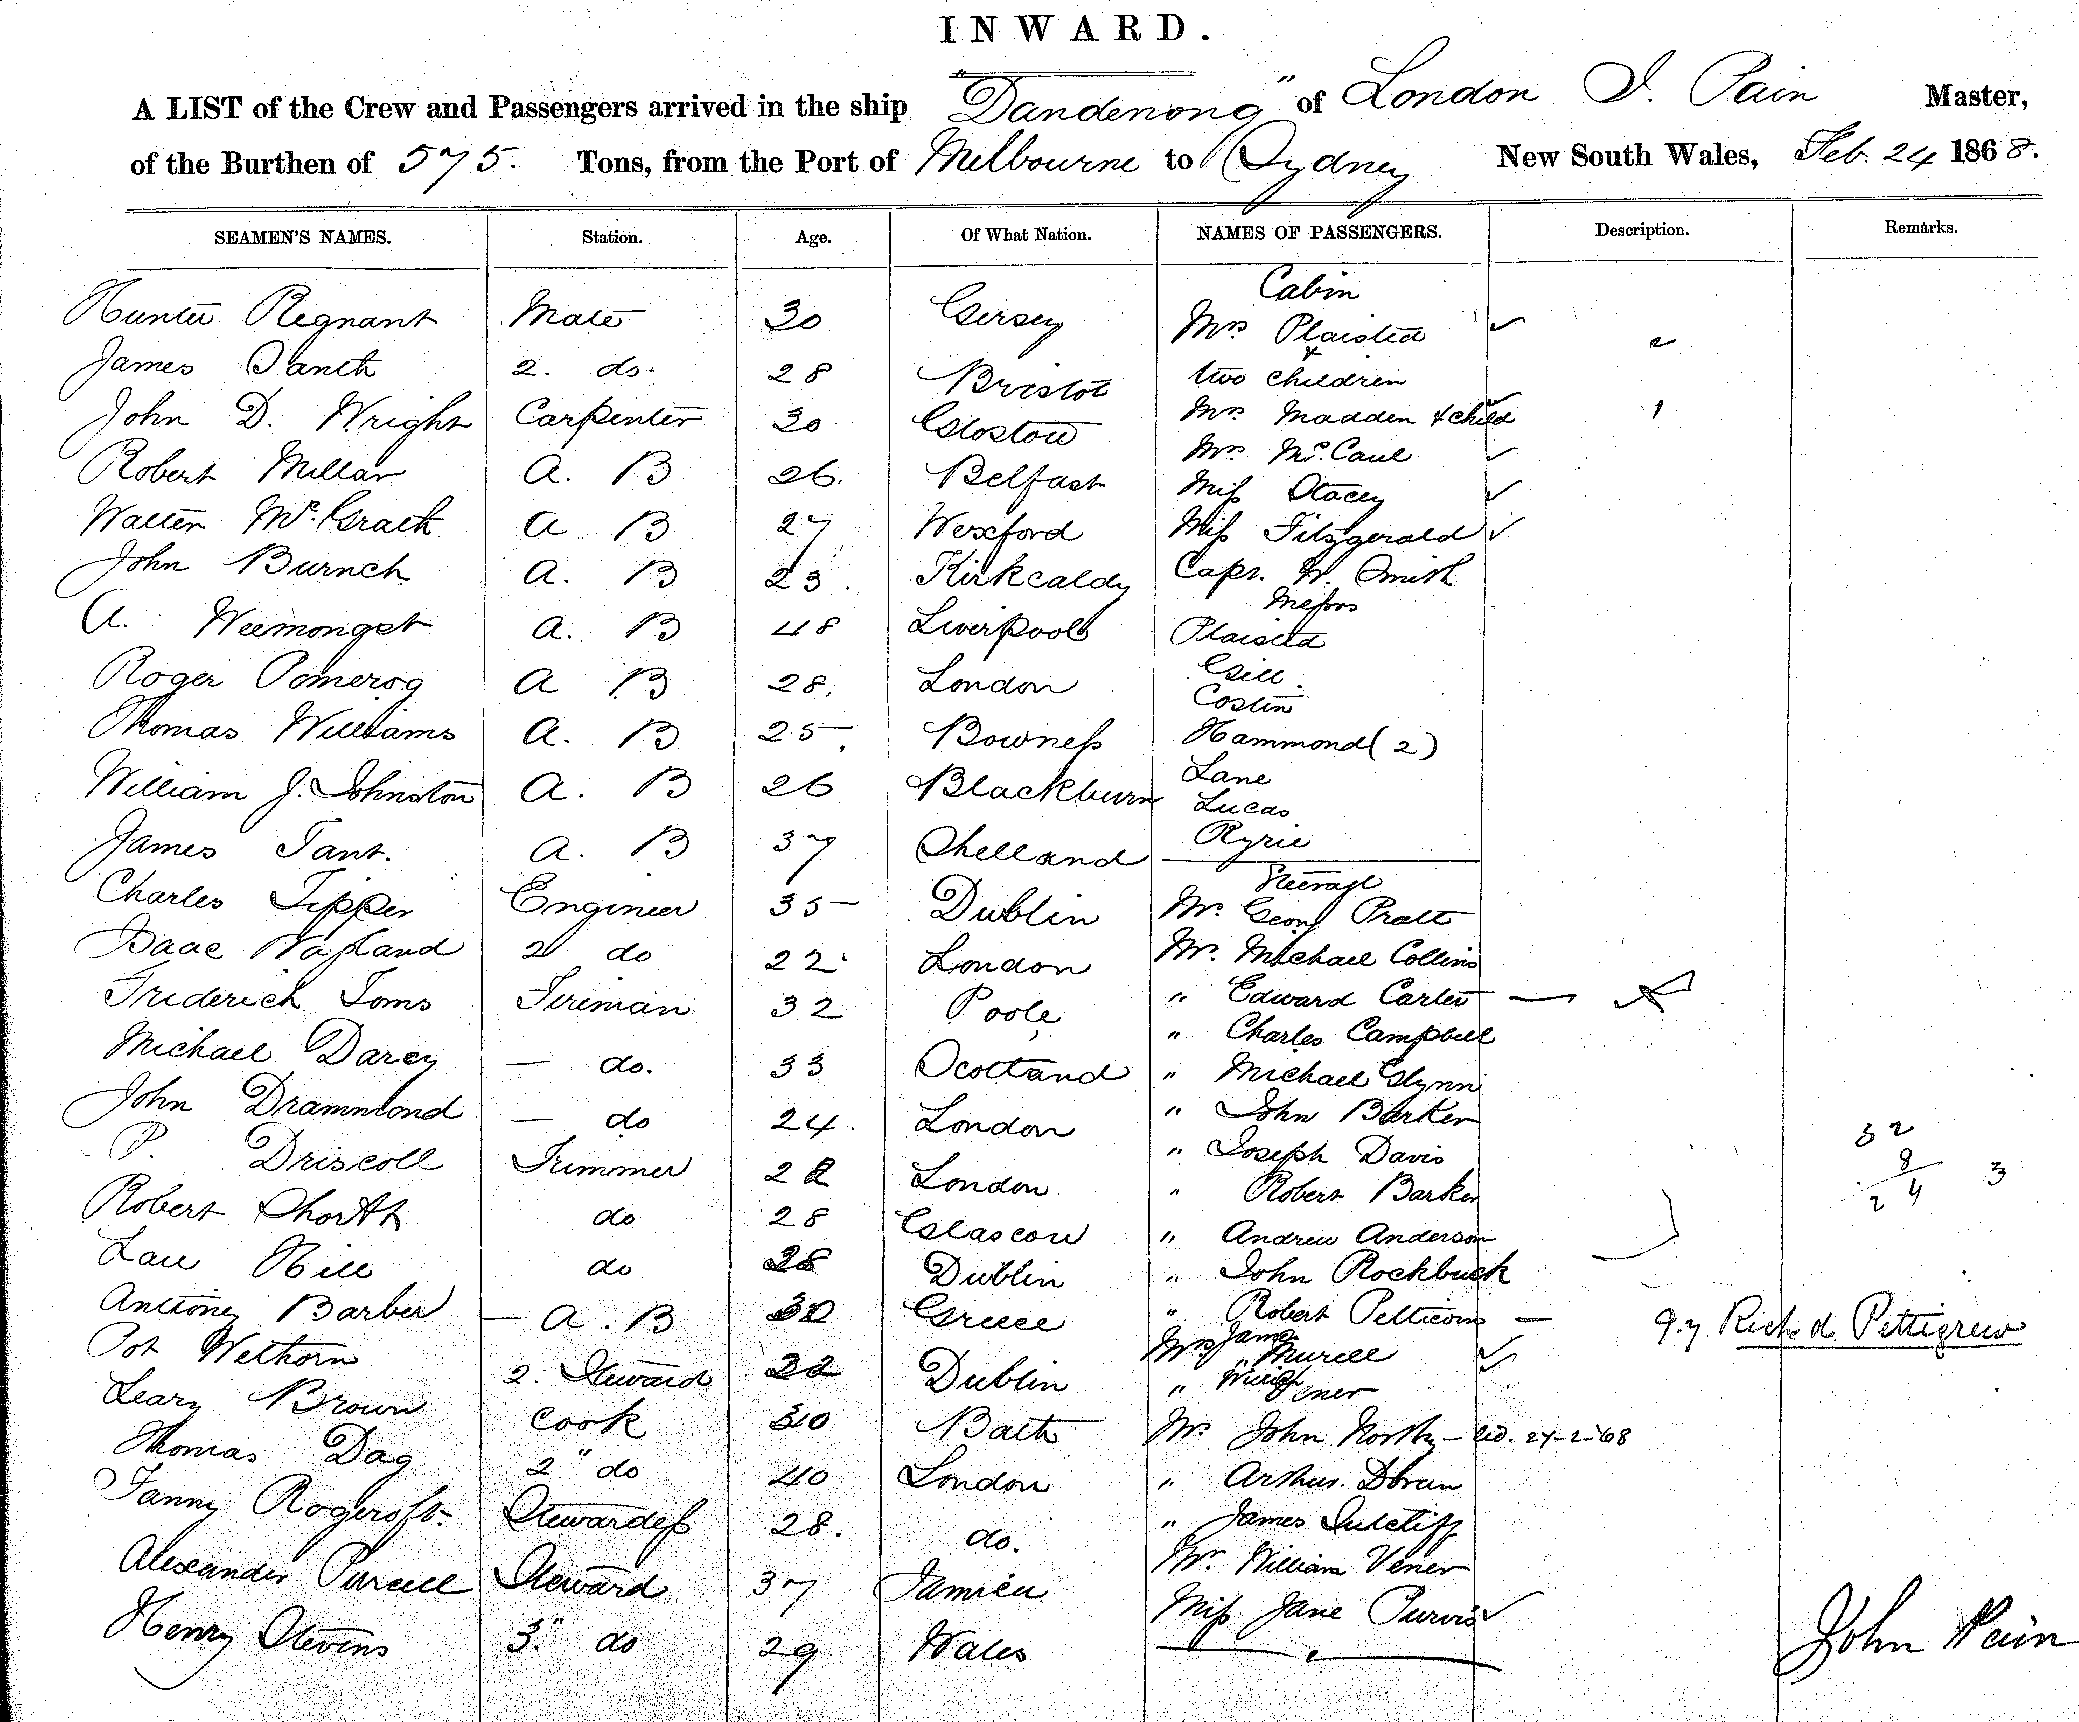 INWARD.
A LIST of the Crew and Passengers arrived in the ship "Dandenong" of London J. Pain Master,
of the Burthen of 575. Tons, from the Port of Melbourne to Sydney New South Wales, Feb. 24 1868.
SEAMEN'S NAMES. Station. Age. Of What Nation. NAMES OF PASSENGERS. Description. Remarks.
Cabin
Hunter Regnant Mate 30 Gersey Mrs Plaisted
James 2. do. 28 Bristol two children
John D. Wright Carpenter 30 Mrs Madden & child
Robert Millar A. B 26. Belfast Mrs McCaul
Miss Stacey
Walter McGrath A B 27 Wexford Miss Fitzgerald
John Burnch A. B 23. Kirkcaldy Capt. W. Smith
Messrs
A. A. B 48 Liverpool Plaisted
Roger Pomerog A B 28. London Gill
Costin
Thomas Williams A. B 25 Bowness Hammond (2)
William J. Johnston A. B 26 Blackburn Lane
Lucas
James Tant. A. B 37 Shelland Ryrie
Steerage
Charles Tipper Engineer 35 Dublin Mr. Georg Pratt
Isaac Wayland 2 do 22 London Mr. Michael Collins
Friderich Toms Fireman 32 Poole " Edward Carter
" Charles Campbell
Michael Darcy — do. 33 Scotland " Michael Glynn
John Drammond — do 24. London " John Barker
P. Driscoll Trimmer 22 London " Joseph Davis
32
8
24 3
" Robert Barker
Robert Short do 28 Glascow " Andrew Anderson
Hill do 28 Dublin " John Rockbuck
Antioney Barber — A. B 30 Greece " Robert Petticom — q.y Richd. Pettigrew
Pot Wethorn 2. Steward 22 Dublin Mrs Jane Murell
" Vener
Leary Brown Cook 30 Bath Mr John North - 27-2-68
Thomas Dag 2" do 40 London " Arthur Doran
Fanny Stewardess 28. do. " James Sutcliff
Alexander Purcell Steward 37 Mr. William Vener
Henry Stevens 3." do 29 Wales Miss Jane Purvis
John Pain